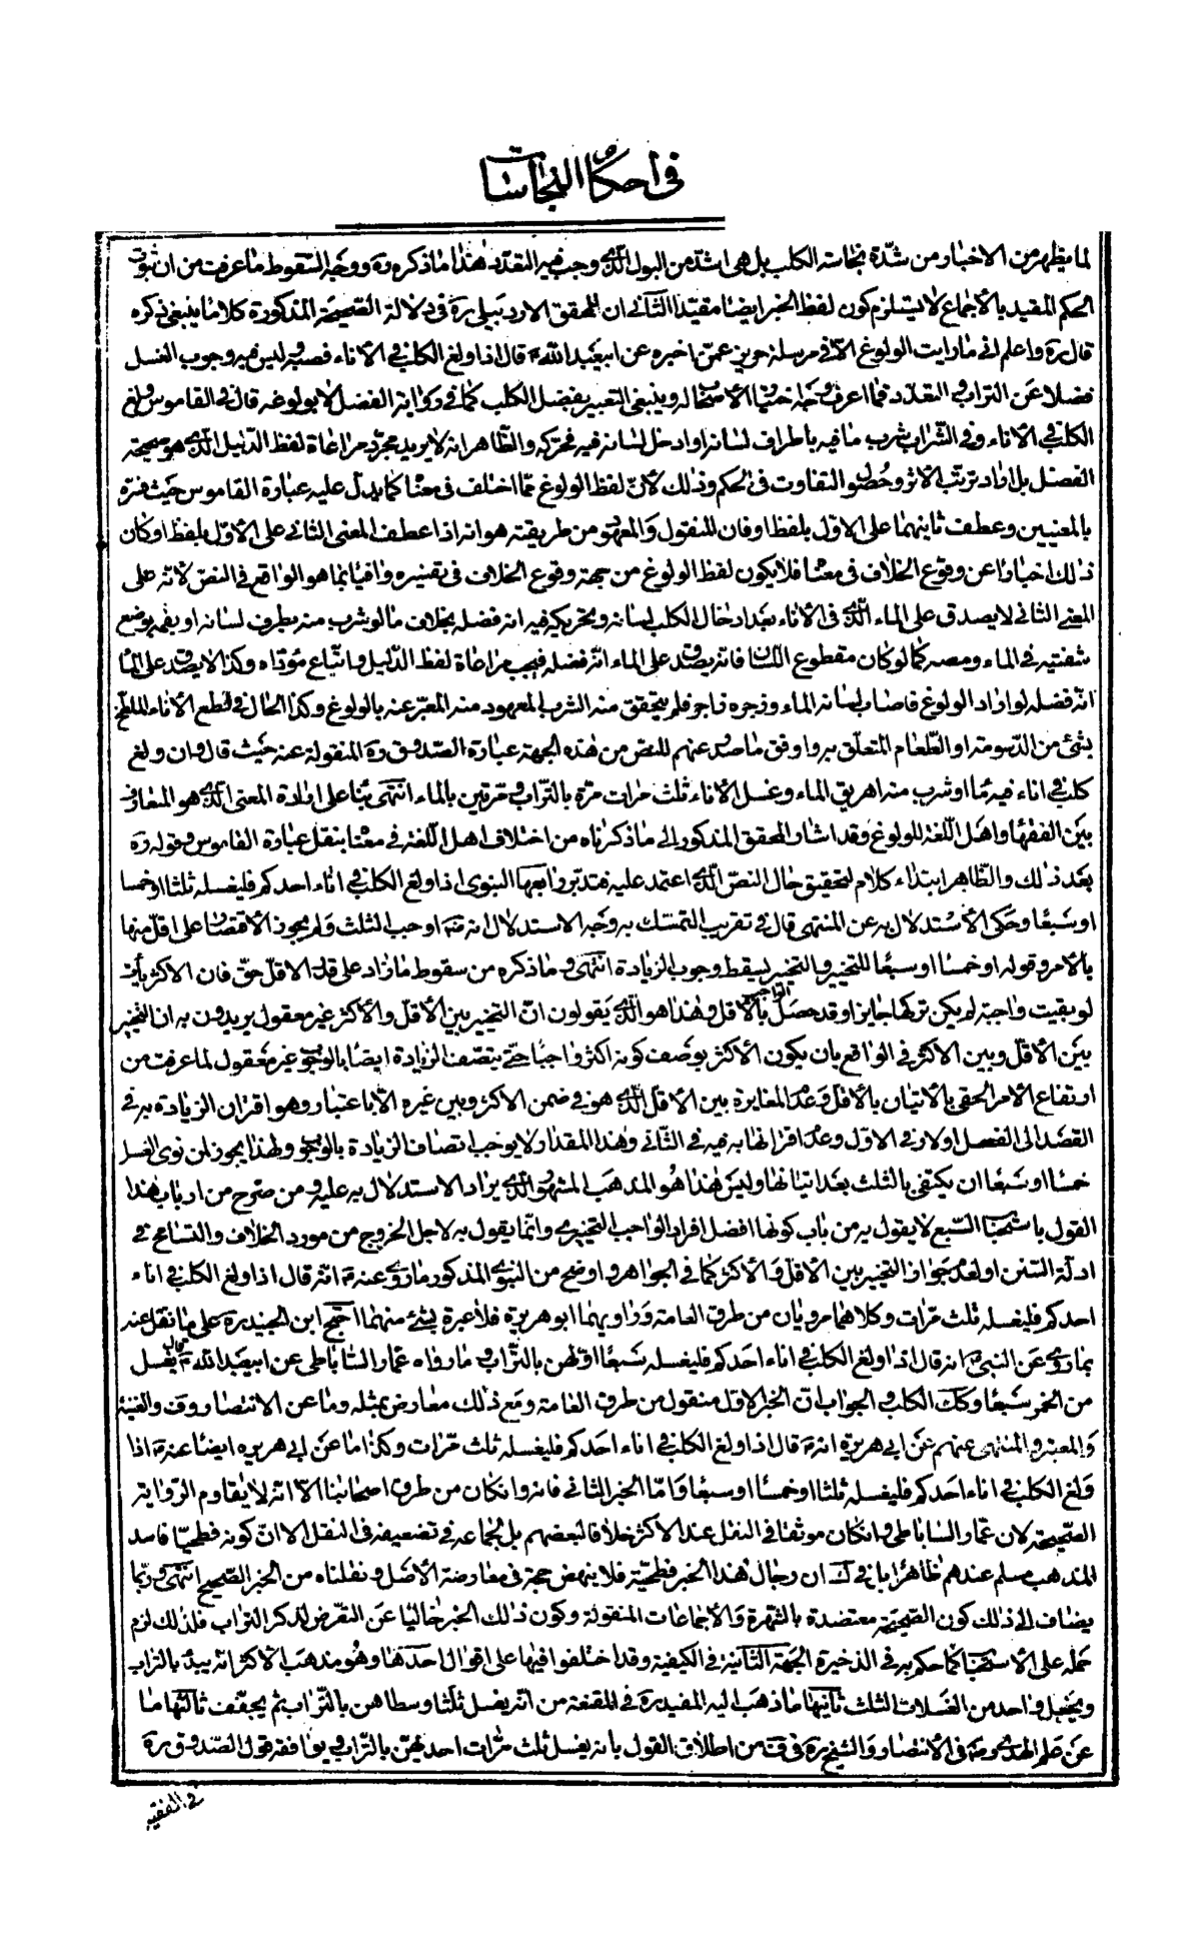 في احكام النجاسات
لما يظهر من الاخبار من شدة نجاسة الكلب بل هى اشد من البول الذى وجب فيه التعدد هذا ما ذكره ره ووجه السقوط ما عرفت من ان ثبوت
الحكم المقيد بالاجماع لا يستلزم كون لفظ الخبر ايضا مقيدا الثانى ان للمحقق الاردبيلى ره فى دلالة الصحيحة المذكورة كلاما ينبغى ذكره
قال ره واعلم انى ما رايت الولوغ الا فى مرسلة حريز عمن اخبره عن ابيعبد الله ع قال اذا ولغ الكلب فى الاناء فصبه وليس فيه وجوب الغسل
فضلا عن التراب والتعدد فما اعرف وجه خص الاصحاب له وينبغى التعبير بفضل الكلب كما فى رواية الفضل لا بولوغه قال فى القاموس ولغ
الكلب فى الاناء وفى الشراب شرب ما فيه باطراف لسانه او ادخل لسانه فيه فحركه والظاهر انه لا يريد مجرد مراعاة لفظ الدليل الذى هو صحيحة
الفضل بل اراد ترتب الاثر وحصول التفاوت فى الحكم وذلك لان لفظ الولوغ مما اختلف فى معناه كما يدل عليه عبارة القاموس حيث فسره
بالمعنيين وعطف ثانيهما على الاول بلفظ او فان المنقول والمعهود من طريقته هو انه اذا عطف المعنى الثانى على الاول بلفظ او كان
ذلك اخبارا عن وقوع الخلاف فى معناه فلا يكون لفظ الولوغ من جهة وقوع الخلاف فى تفسيره وافيا بما هو الواقع فى النص لانه على
المعنى الثانى لا يصدق على الماء الذى فى الاناء بعد ادخال الكلب لسانه وتحريكه فيه انه فضله بخلاف ما لو شرب منه بطرف لسانه او بفمه بوضع
شفتيه فى الماء ومصه كما لو كان مقطوع اللسان فانه يصدق على الماء انه فضله فيجب مراعاة لفظ الدليل واتباع مؤداه وكذا لا يصدق على الماء
انه فضله لو اراد الولوغ فاصاب لسانه الماء وزجره زاجر فلم يتحقق منه الشرب المعهود منه المعبر عنه بالولوغ وكذا الحال فى لطع الاناء الملطخ
بشئ من الدسومة او الطعام المتعلق به واوفق ما صدر عنهم للنص من هذه الجهة عبارة الصدوق ره المنقولة عنه حيث قال وان ولغ
كلب فى اناء فيه ماء او شرب منه اهريق الماء وغسل الاناء ثلث مرات مرة بالتراب ومرتين بالماء انتهى بناء على ارادة المعنى الذى هو المتعارف
بين الفقهاء واهل اللغة للولوغ وقد اشار المحقق المذكور الى ما ذكرناه من اختلاف اهل اللغة فى معناه بنقل عبارة القاموس وقوله ره
بعد ذلك والظاهر ابتداء كلام لتحقيق حال النص الذى اعتمد عليه فتدبر رابعها النبوى اذا ولغ الكلب فى اناء احدكم فليغسله ثلثا او خمسا
او سبعا وحكى الاستدلال به عن المنتهى قال فى تقريب التمسك به وجه الاستدلال انه ص اوجب الثلث ولم يجوز الاقتصار على اقل منها
بالامر وقوله او خمسا او سبعا للتخيير والتخيير يسقط وجوب الزيادة انتهى وما ذكره من سقوط ما زاد على قدر الاقل حق فان الاكثر بانه
لو بقيت واجبة لم يكن تركها جايزا وقد حصل الواجب بالاقل وهذا هو الذى يقولون ان التخيير بين الاقل والاكثر غير معقول يريدون به ان التخيير
بين الاقل وبين الاكثر فى الواقع بان يكون الاكثر بوصف كونه اكثر واجبا حتى يتصف الزيادة ايضا بالوجوب غير معقول لما عرفت من
ارتفاع الامر الحقى بالاتيان بالاقل وعدم المغايرة بين الاقل الذى هو فى ضمن الاكثر وبين غيره الا باعتبار وهو اقران الزيادة به فى
القصد الى الفصل اولا فى الاول وعدم اقرانها به فيه فى الثانى وهذا المقدار لا يوجب اتصاف الزيادة بالوجوب ولهذا يجوز لمن نوى الغسل
خمسا او سبعا ان يكتفى بالثلث بعد اتيانها وليس هذا هو المذهب المشهور الذى يراد الاستدلال به عليه ومن صرح من ارباب هذا
القول باستحباب السبع لا يقول به من باب كونها افضل افراد الواجب التخييرى وانما يقول به لاجل الخروج من مورد الخلاف والتسامح فى
ادلة السنن او لعدم جواز التخيير بين الاقل والاكثر كما فى الجواهر واوضح من النبوى المذكور ما روى عنه ص انه قال اذا ولغ الكلب فى اناء
احدكم فليغسله ثلث مرات وكلاهما مرويان من طرق العامة وراويهما ابو هريرة فلا عبرة بشئ منهما احتج ابن الجنيد ره على ما نقل عنه
بما روى عن النبى ص انه قال اذا ولغ الكلب فى اناء احدكم فليغسله سبعا اولهن بالتراب وما رواه عمار الساباطى عن ابيعبد الله ع قال يغسل
من الخمر سبعا وكك الكلب والجواب ان الخبر الاول منقول من طرق العامة ومع ذلك معارض بمثله وما عن الانتصار وف والغنية
والمعتبر والمنتهى عنهم عن ابى هريرة انه ص قال اذا ولغ الكلب فى اناء احدكم فليغسله ثلث مرات وكذا ما عن ابى هريره ايضا عنه ص اذا
ولغ الكلب فى اناء احدكم فليغسله ثلثا او خمسا او سبعا واما الخبر الثانى فانه وان كان من طرق اصحابنا الا انه لا يقاوم الرواية
الصحيحة لان عمار الساباطى وان كان موثقا فى النقل عند الاكثر خلافا لبعضهم بل لجماعة فى تضعيفه فى النقل الا ان كونه فطحيا فاسد
المذهب مسلم عندهم ظاهرا بل فى ك ان رجال هذا الخبر فطحية فلا ينهض حجة فى معارضة الاصل ونقلناه من الخبر الصحيح انتهى وربما
يضاف الى ذلك كون الصحيحة معتضدة بالشهرة والاجماعات المنقولة وكون ذلك الخبر خاليا عن التعرض لذكر التراب فلذلك لزم
حمله على الاستحباب كما حكم به فى الذخيرة الجهة الثانية فى الكيفية وقد اختلفوا فيها على اقوال احدها وهو مذهب الاكثر انه يبدء بالتراب
ويجعل واحد من الغسلات الثلث ثانيها ما ذهب اليه المفيد ره فى المقنعة من انه يغسل ثلثا وسطاهن بالتراب ثم يجفف ثالثها ما
عن علم الهدى رض فى الانتصار والشيخ ره فى ف من اطلاق القول بانه يغسل ثلث مرات احديهن بالتراب ويوافقه قول الصدوق ره
فى الفقيه